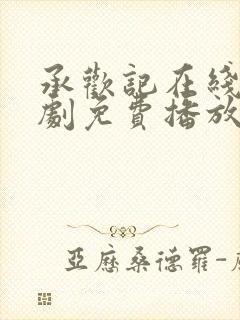 承歡記在綫
劇免費播放
亞歷桑德羅-